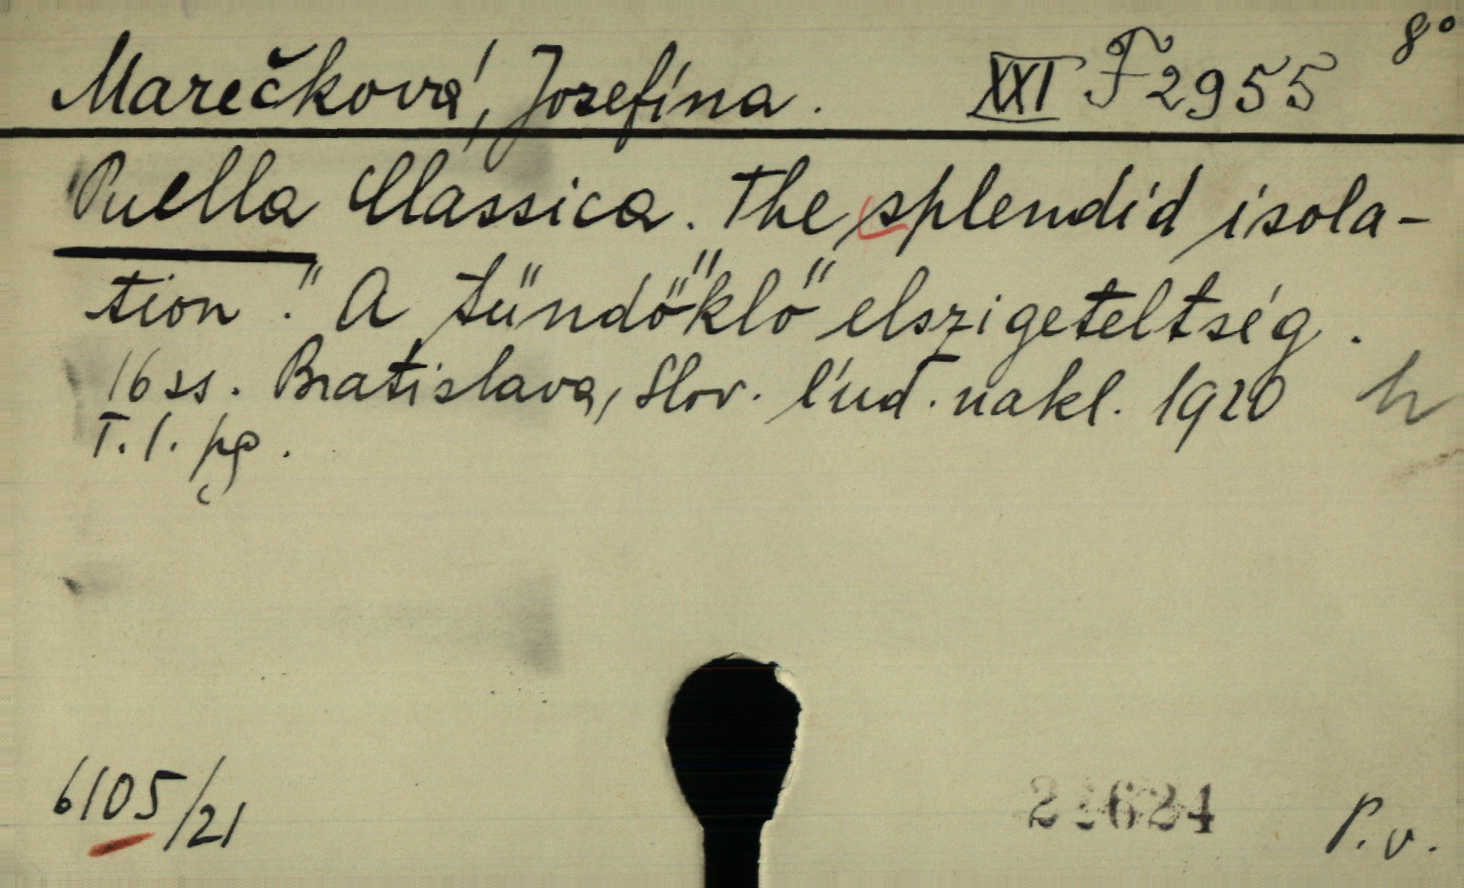 Marečková, Josefína. XXI F 2955 8°
Puella Classica. The splendid isola-
tion." A tündöklő elszigeteltség.
16 ss. Bratislava, Slov. ľud. nakl. 1920 h
T. l. pg.
6105/21
P. v.